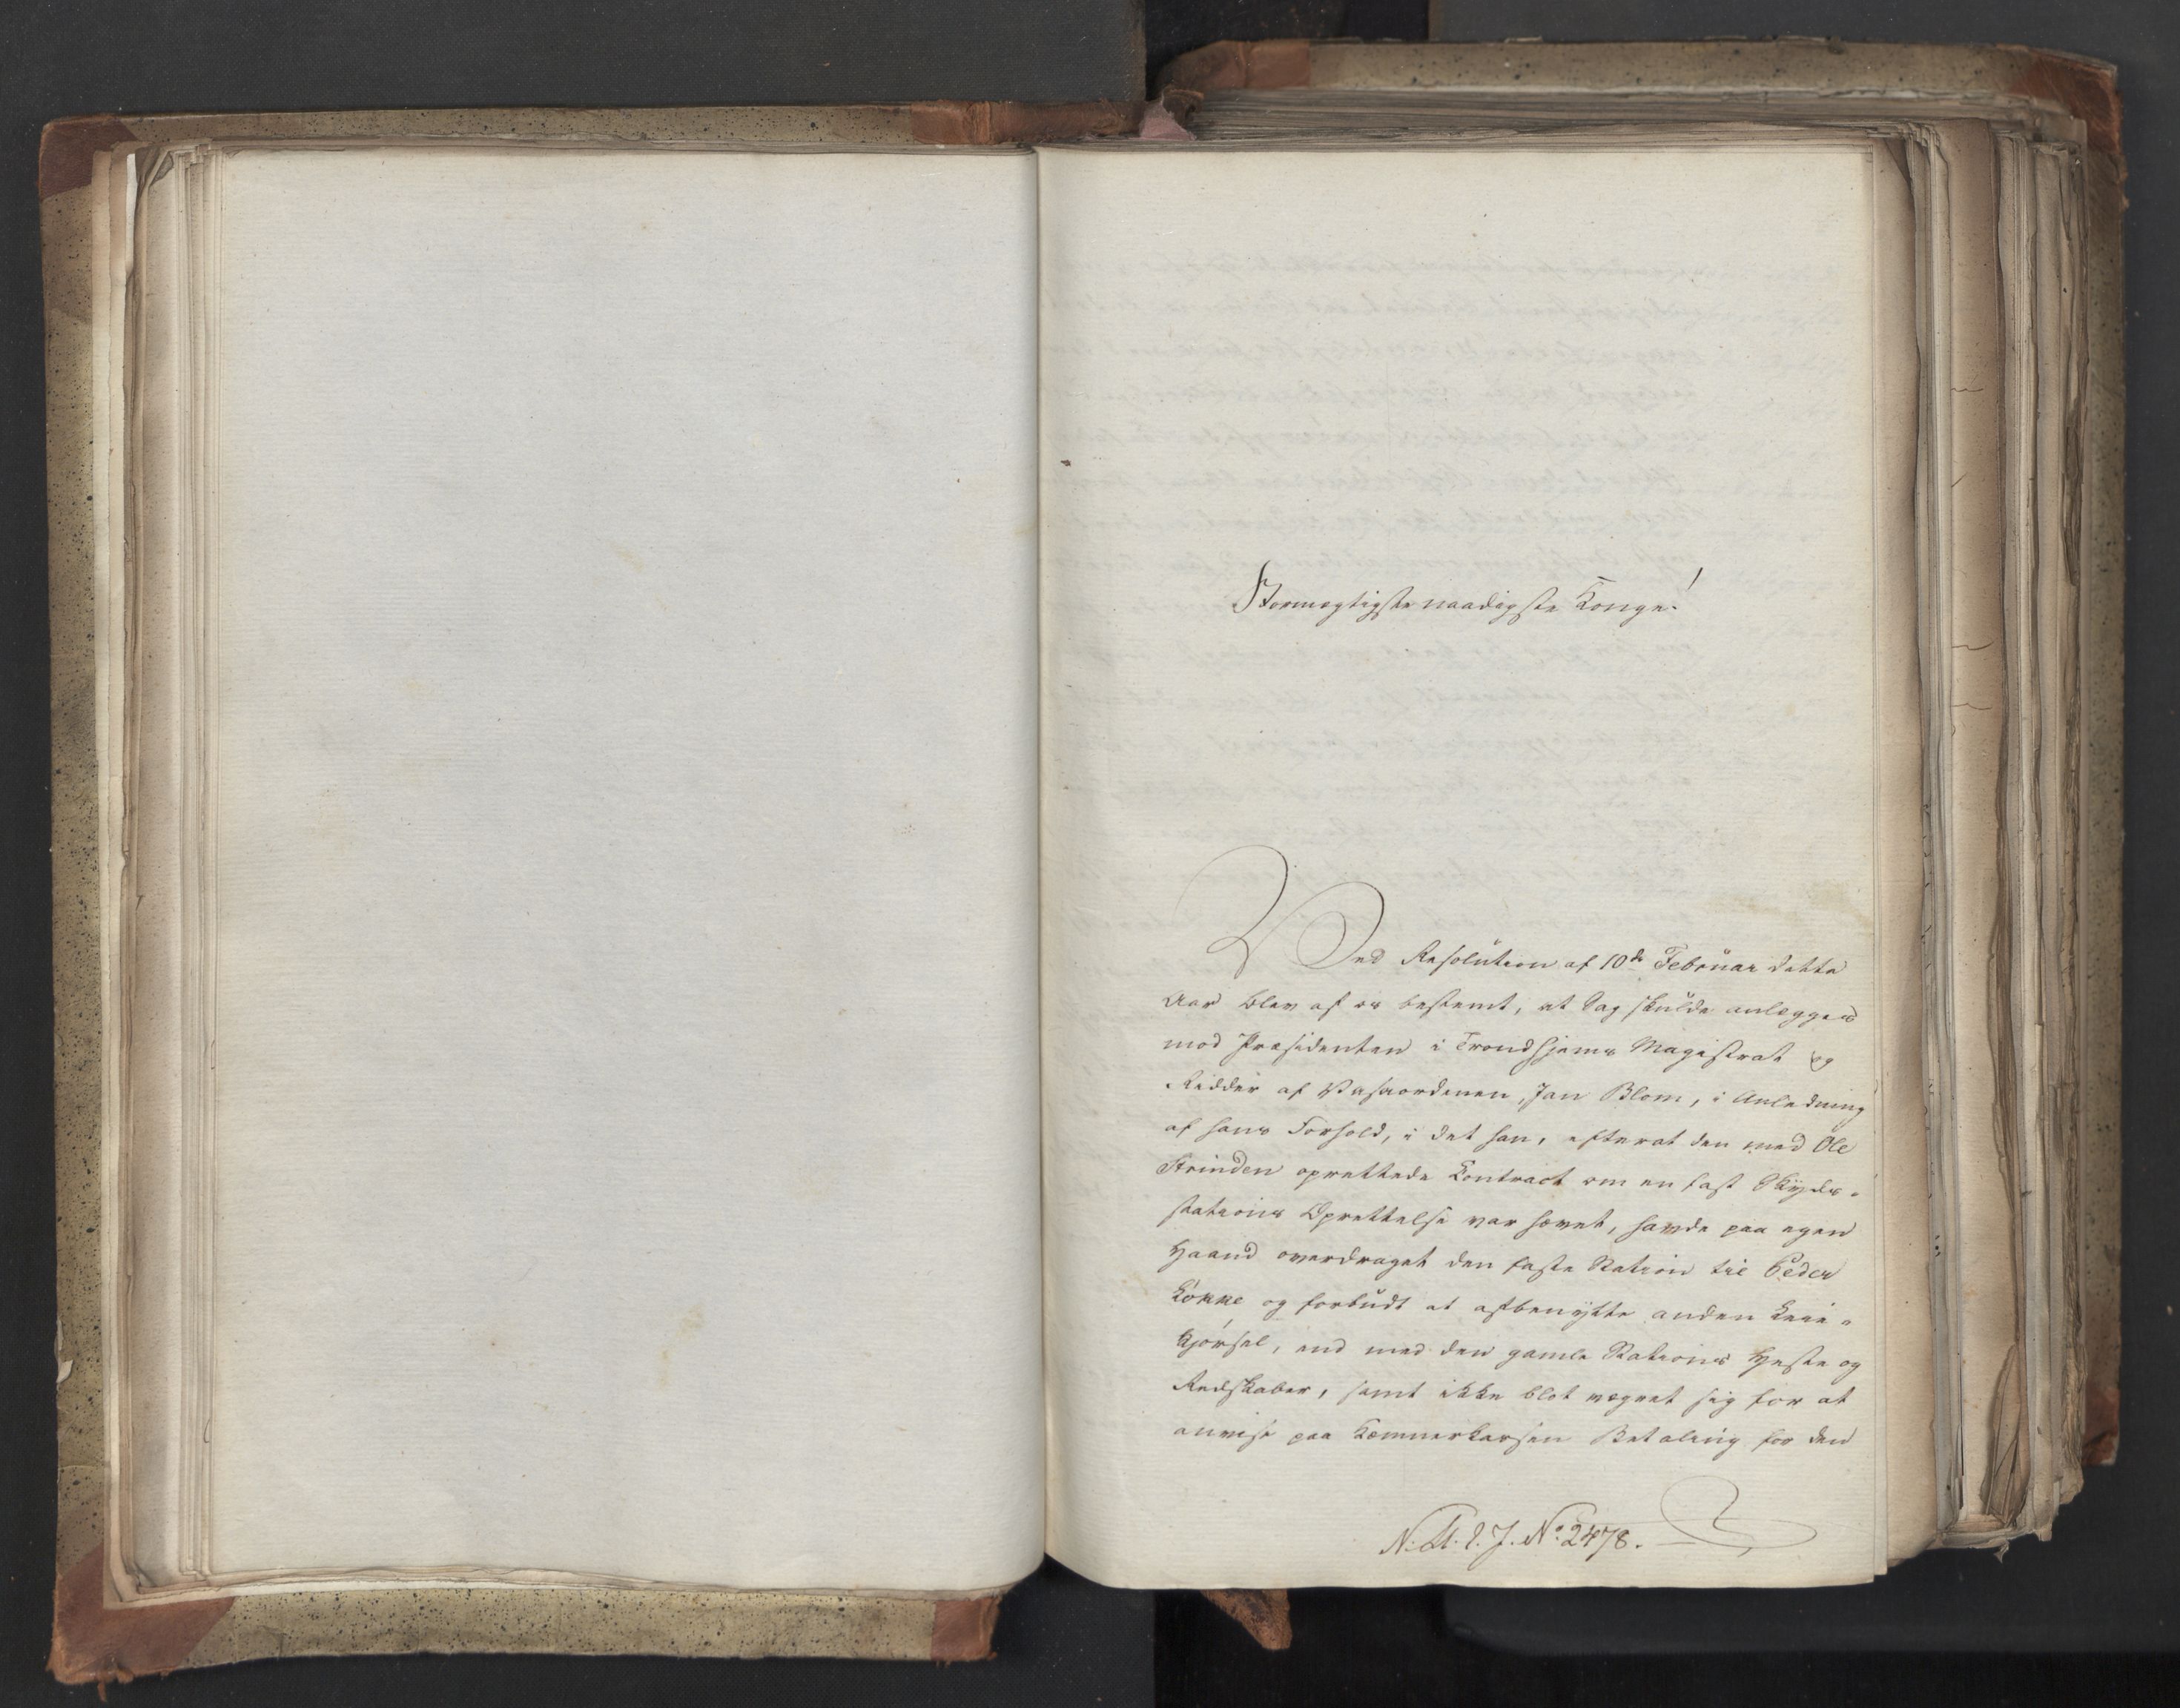 Stormægtigste naadigste Konge!
Ved Resolution af 10de Februar dette
Aar blev af os bestemt, at Sag skulde anlægges
mod Præsidenten i Trondhjems Magistrat og
Ridder af Vasaordenen, Jan Blom, i Anledning
af hans Forhold, i det han, efterat den med Ole
Strinden oprettede Contract om en fast Skyds-
stations Oprettelse var hævet, havde paa egen
Haand overdraget den faste Station til Peder
Kökke og forbudt at afbenytte anden Leie-
kjørsel, end med den gamle Stations Heste og
Redskaber, samt ikke blot vægret sig for at
anvise paa Kæmnerkassen Betaling for den
N. A. J. No 2478.